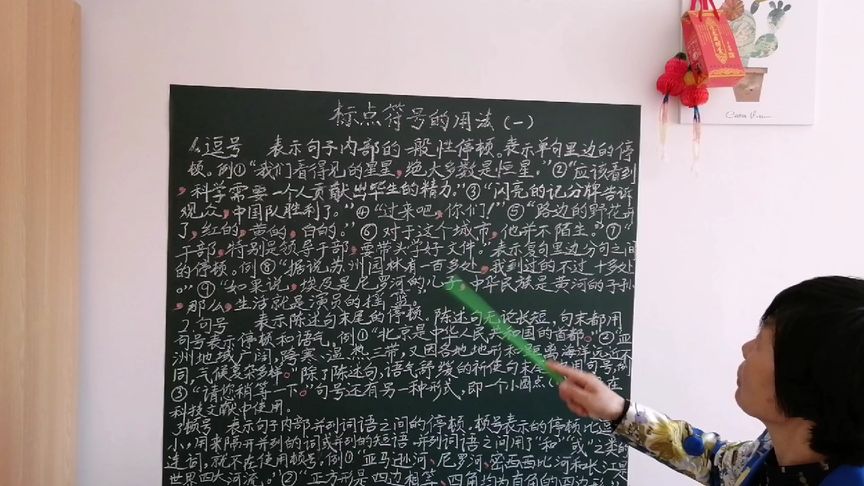 标点符号的用法(一)
1.逗号 表示句子内部的一般性停顿。表示单句里边的停
顿。例①“我们看得见的星星,绝大多数是恒星。”②“应该看到
,科学需要一个人贡献出毕生的精力。”③“闪亮的记分牌告诉
观众,中国队胜利了。”④“过来吧,你们!”⑤“路边的野花开
了,红的,黄的,白的。”⑥“对于这个城市,他并不陌生。”⑦“
干部,特别是领导干部,要带头学好文件。”表示复句里边分句之间
的停顿。例⑧“据说,苏州园林有一百多处,我到过的不过十多处
。”⑨“如果说,埃及是尼罗河的儿子,中华民族是黄河的子孙
,那么,生活就是演员的摇篮。
2句号 表示陈述句末尾的停顿。陈述句无论长短,句末都用
句号表示停顿和语气。例①“北京是中华人民共和国的首都。”②“亚
洲地域广阔,跨寒、温、热三带,又因各地地形和距离海洋远近不
同,气候复杂多样。”除了陈述句,语气舒缓的祈使句末尾 用句号,例
③“请您稍等一下。”句号还有另一种形式,即一个小圆点 在
科技文献中使用。
3顿号 表示句子内部并列词语之间的停顿。顿号表示的停顿比逗
小,用来隔开并列的词或并列的短语。并列词语之间用了“和”“或”之类的
连词,就不在使用顿号,例①“亚马逊河、尼罗河、密西西比河和长江是
世界四大河流。”②“正方形是四边相等、四角均为直角的四边形。